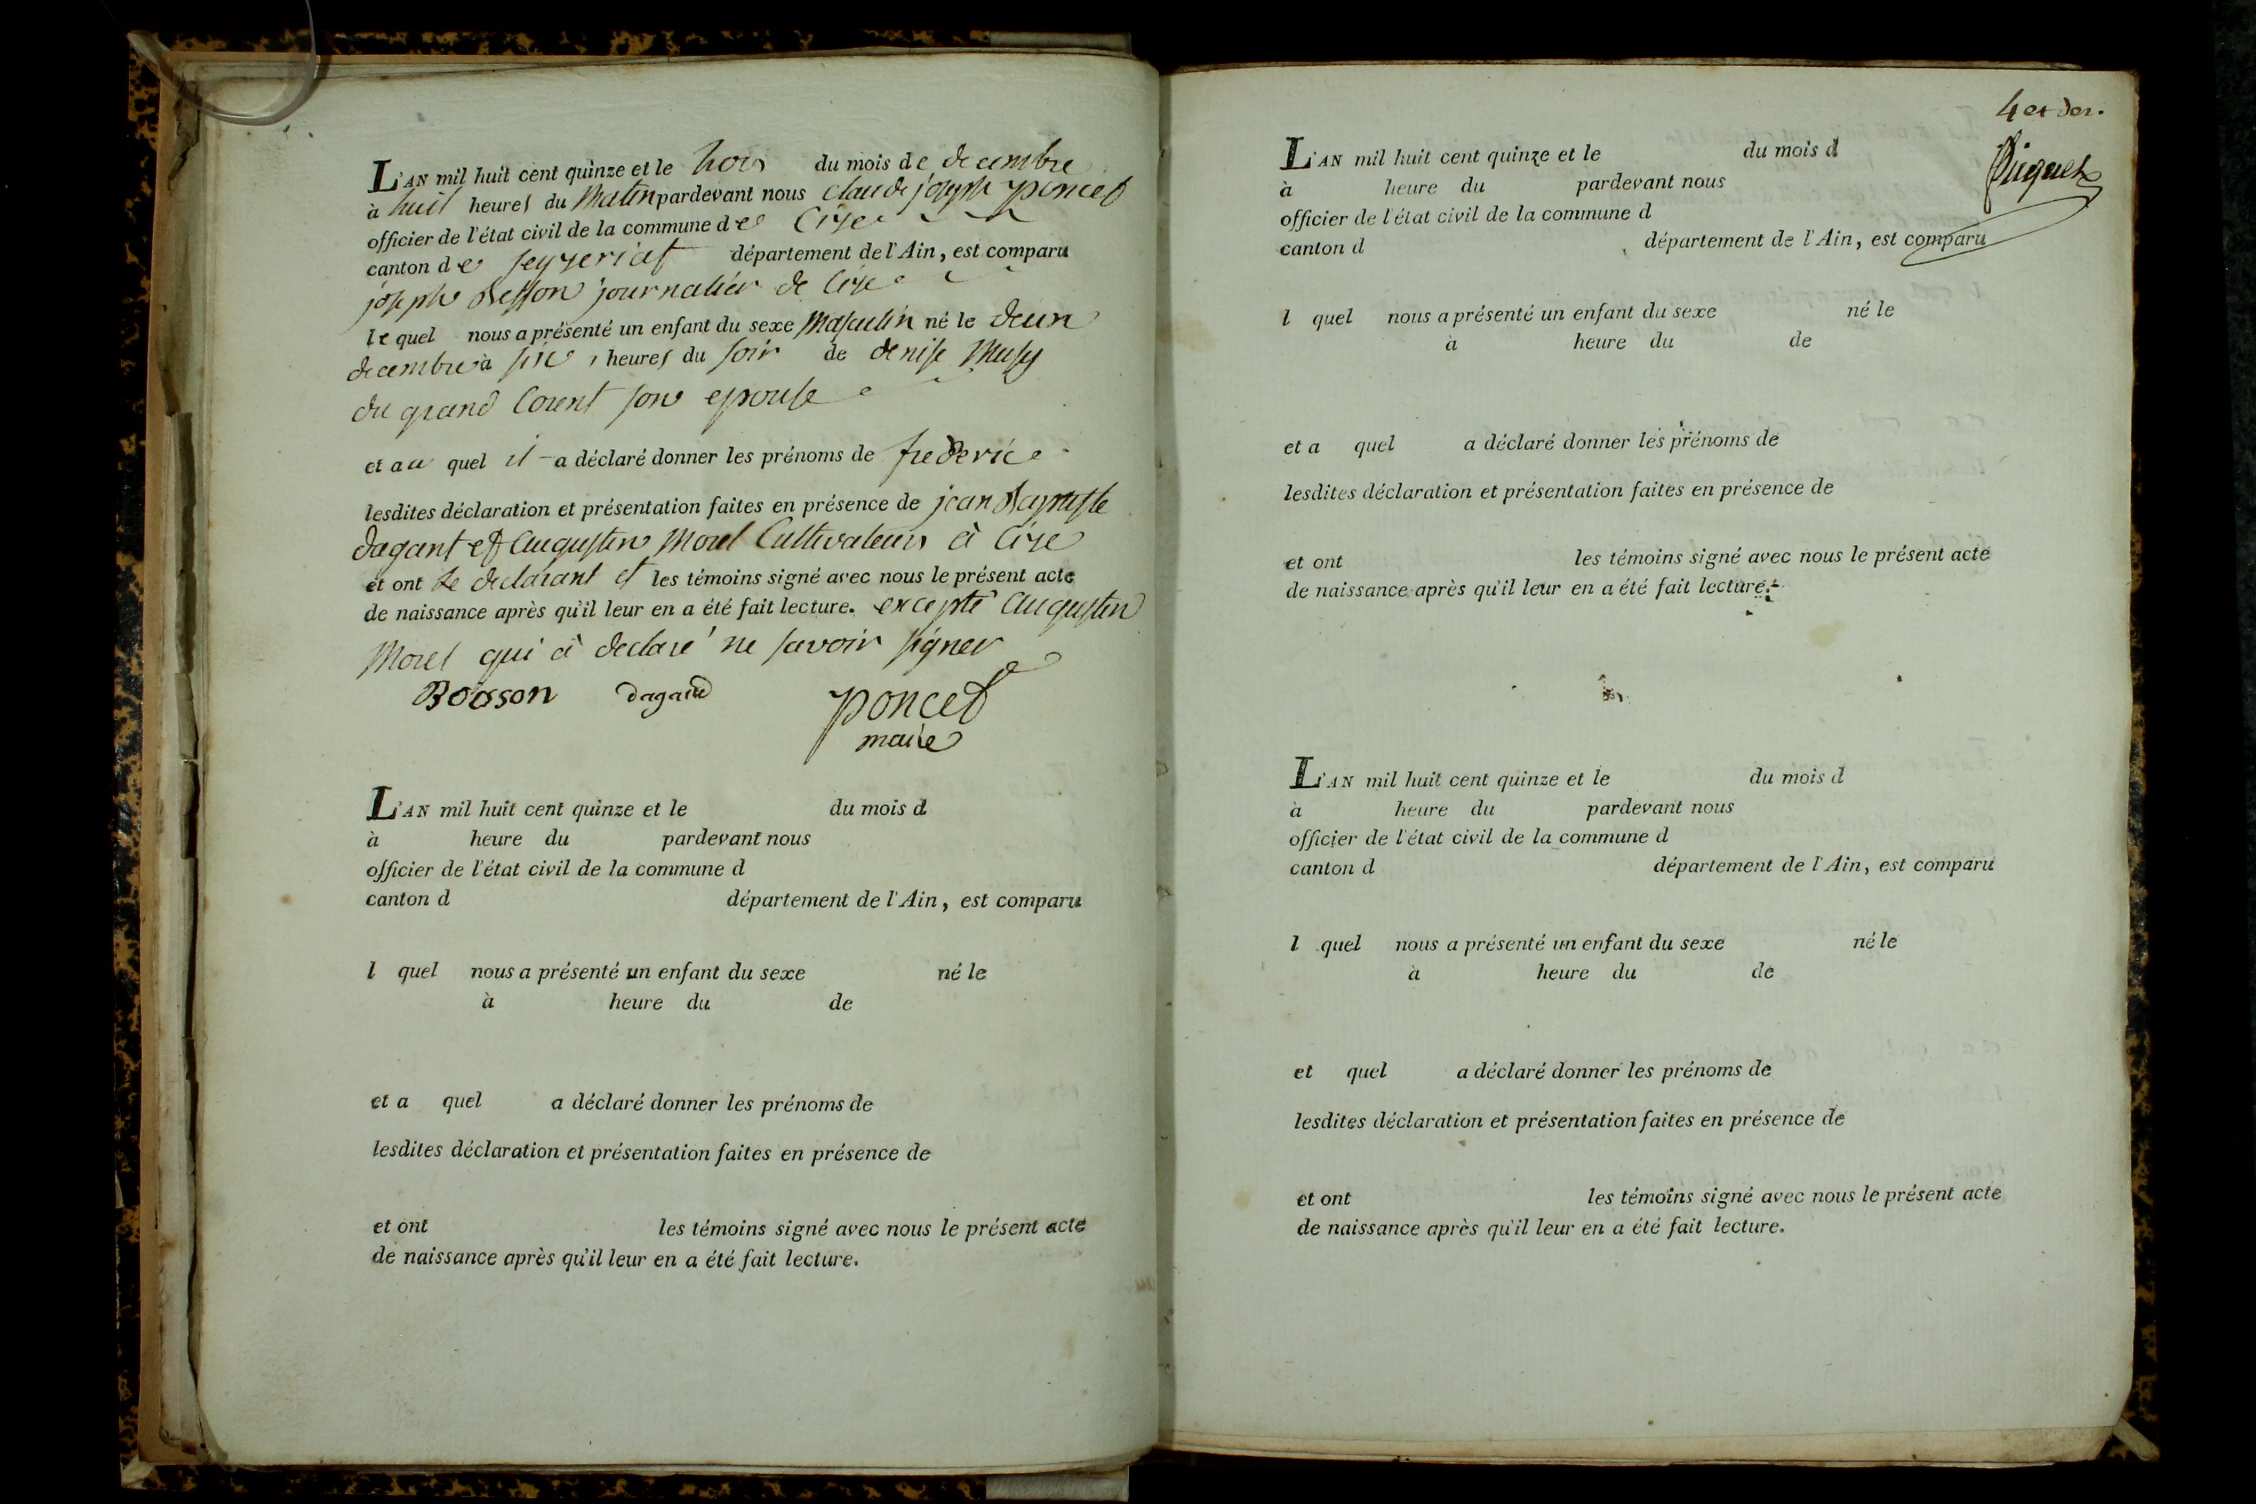 L'AN mil huit cent quinze et le trois du mois de decembre
à huit heures du matin pardevant nous claude joseph poncet
officier de l'état civil de la commune de Cize
canton de seyzeriat département de l'Ain, est comparu
joseph journalier de Cize
lequel nous a présenté un enfant du sexe masculin né le deux
decembre à six heures du soir de denise Musy
du grand Corent son epouse
et au quel il a déclaré donner les prénoms de frederic
lesdites déclaration et présentation faites en présence de jean Baptiste
dagant et augustin Morel Cultivateurs à Cize
et ont le declarant et les témoins signé avec nous le présent acte
de naissance après qu'il leur en a été fait lecture. excepté augustin
Morel qui à declaré ne savoir signer
dagand poncet
maire
L'AN mil huit cent quinze et le du mois d
à heure du pardevant nous
officier de l'état civil de la commune d
canton d département de l'Ain, est comparu
l quel nous a présenté un enfant du sexe né le
à heure du de
et a quel a déclaré donner les prénoms de
lesdites déclaration et présentation faites en présence de
et ont les témoins signé avec nous le présent acte
de naissance après qu'il leur en a été fait lecture.
4 et der.
L'AN mil huit cent quinze et le du mois d
à heure du pardevant nous
officier de l'état civil de la commune d
canton d département de l'Ain, est comparu
l quel nous a présenté un enfant du sexe né le
à heure du de
et a quel a déclaré donner les prénoms de
lesdites déclaration et présentation faites en présence de
et ont les témoins signé avec nous le présent acte
de naissance après qu'il leur en a été fait lecture.
L'AN mil huit cent quinze et le du mois d
à heure du pardevant nous
officier de l'état civil de la commune d
canton d département de l'Ain, est comparu
l quel nous a présenté un enfant du sexe né le
à heure du de
et quel a déclaré donner les prénoms de
lesdites déclaration et présentation faites en présence de
et ont les témoins signé avec nous le présent acte
de naissance après qu'il leur en a été fait lecture.